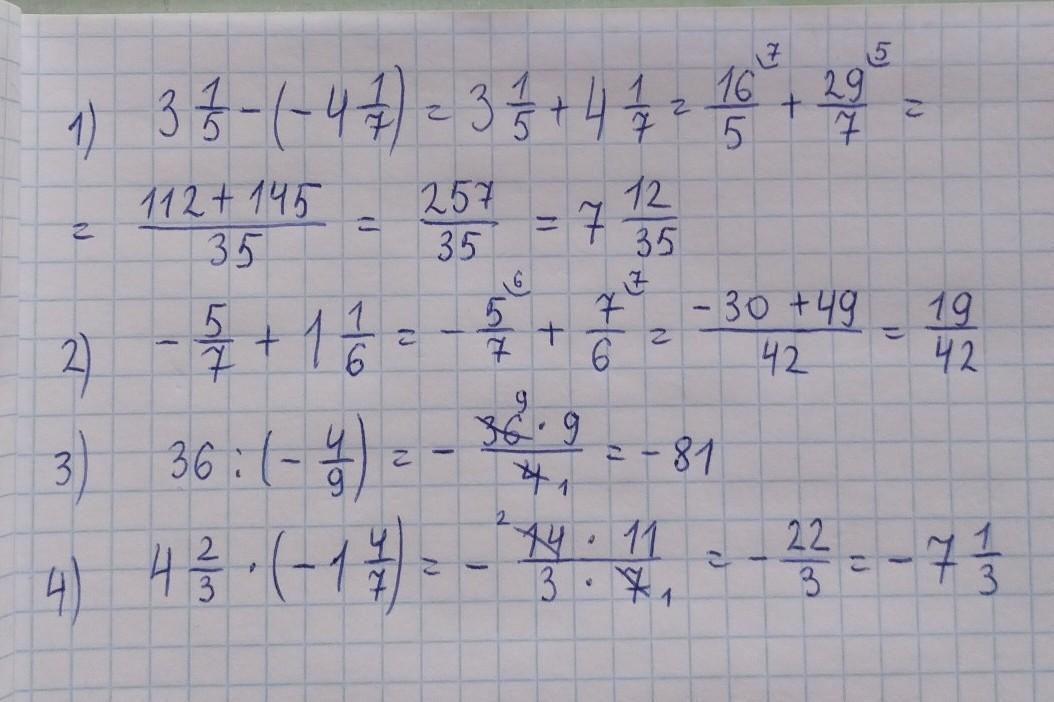 1) 3 1/5 - (-4 1/7) = 3 1/5 + 4 1/7 = 16/5 ⁷ + 29/7 ⁵ =
= (112 + 145)/35 = 257/35 = 7 12/35
2) - 5/7 + 1 1/6 = - 5/7 ⁶ + 7/6 ⁷ = (-30 + 49)/42 = 19/42
3) 36 : (- 4/9) = - (36 ⁹ · 9)/(4 ₁) = - 81
4) 4 2/3 · (-1 4/7) = - (² 14 · 11)/(3 · 7 ₁) = - 22/3 = - 7 1/3